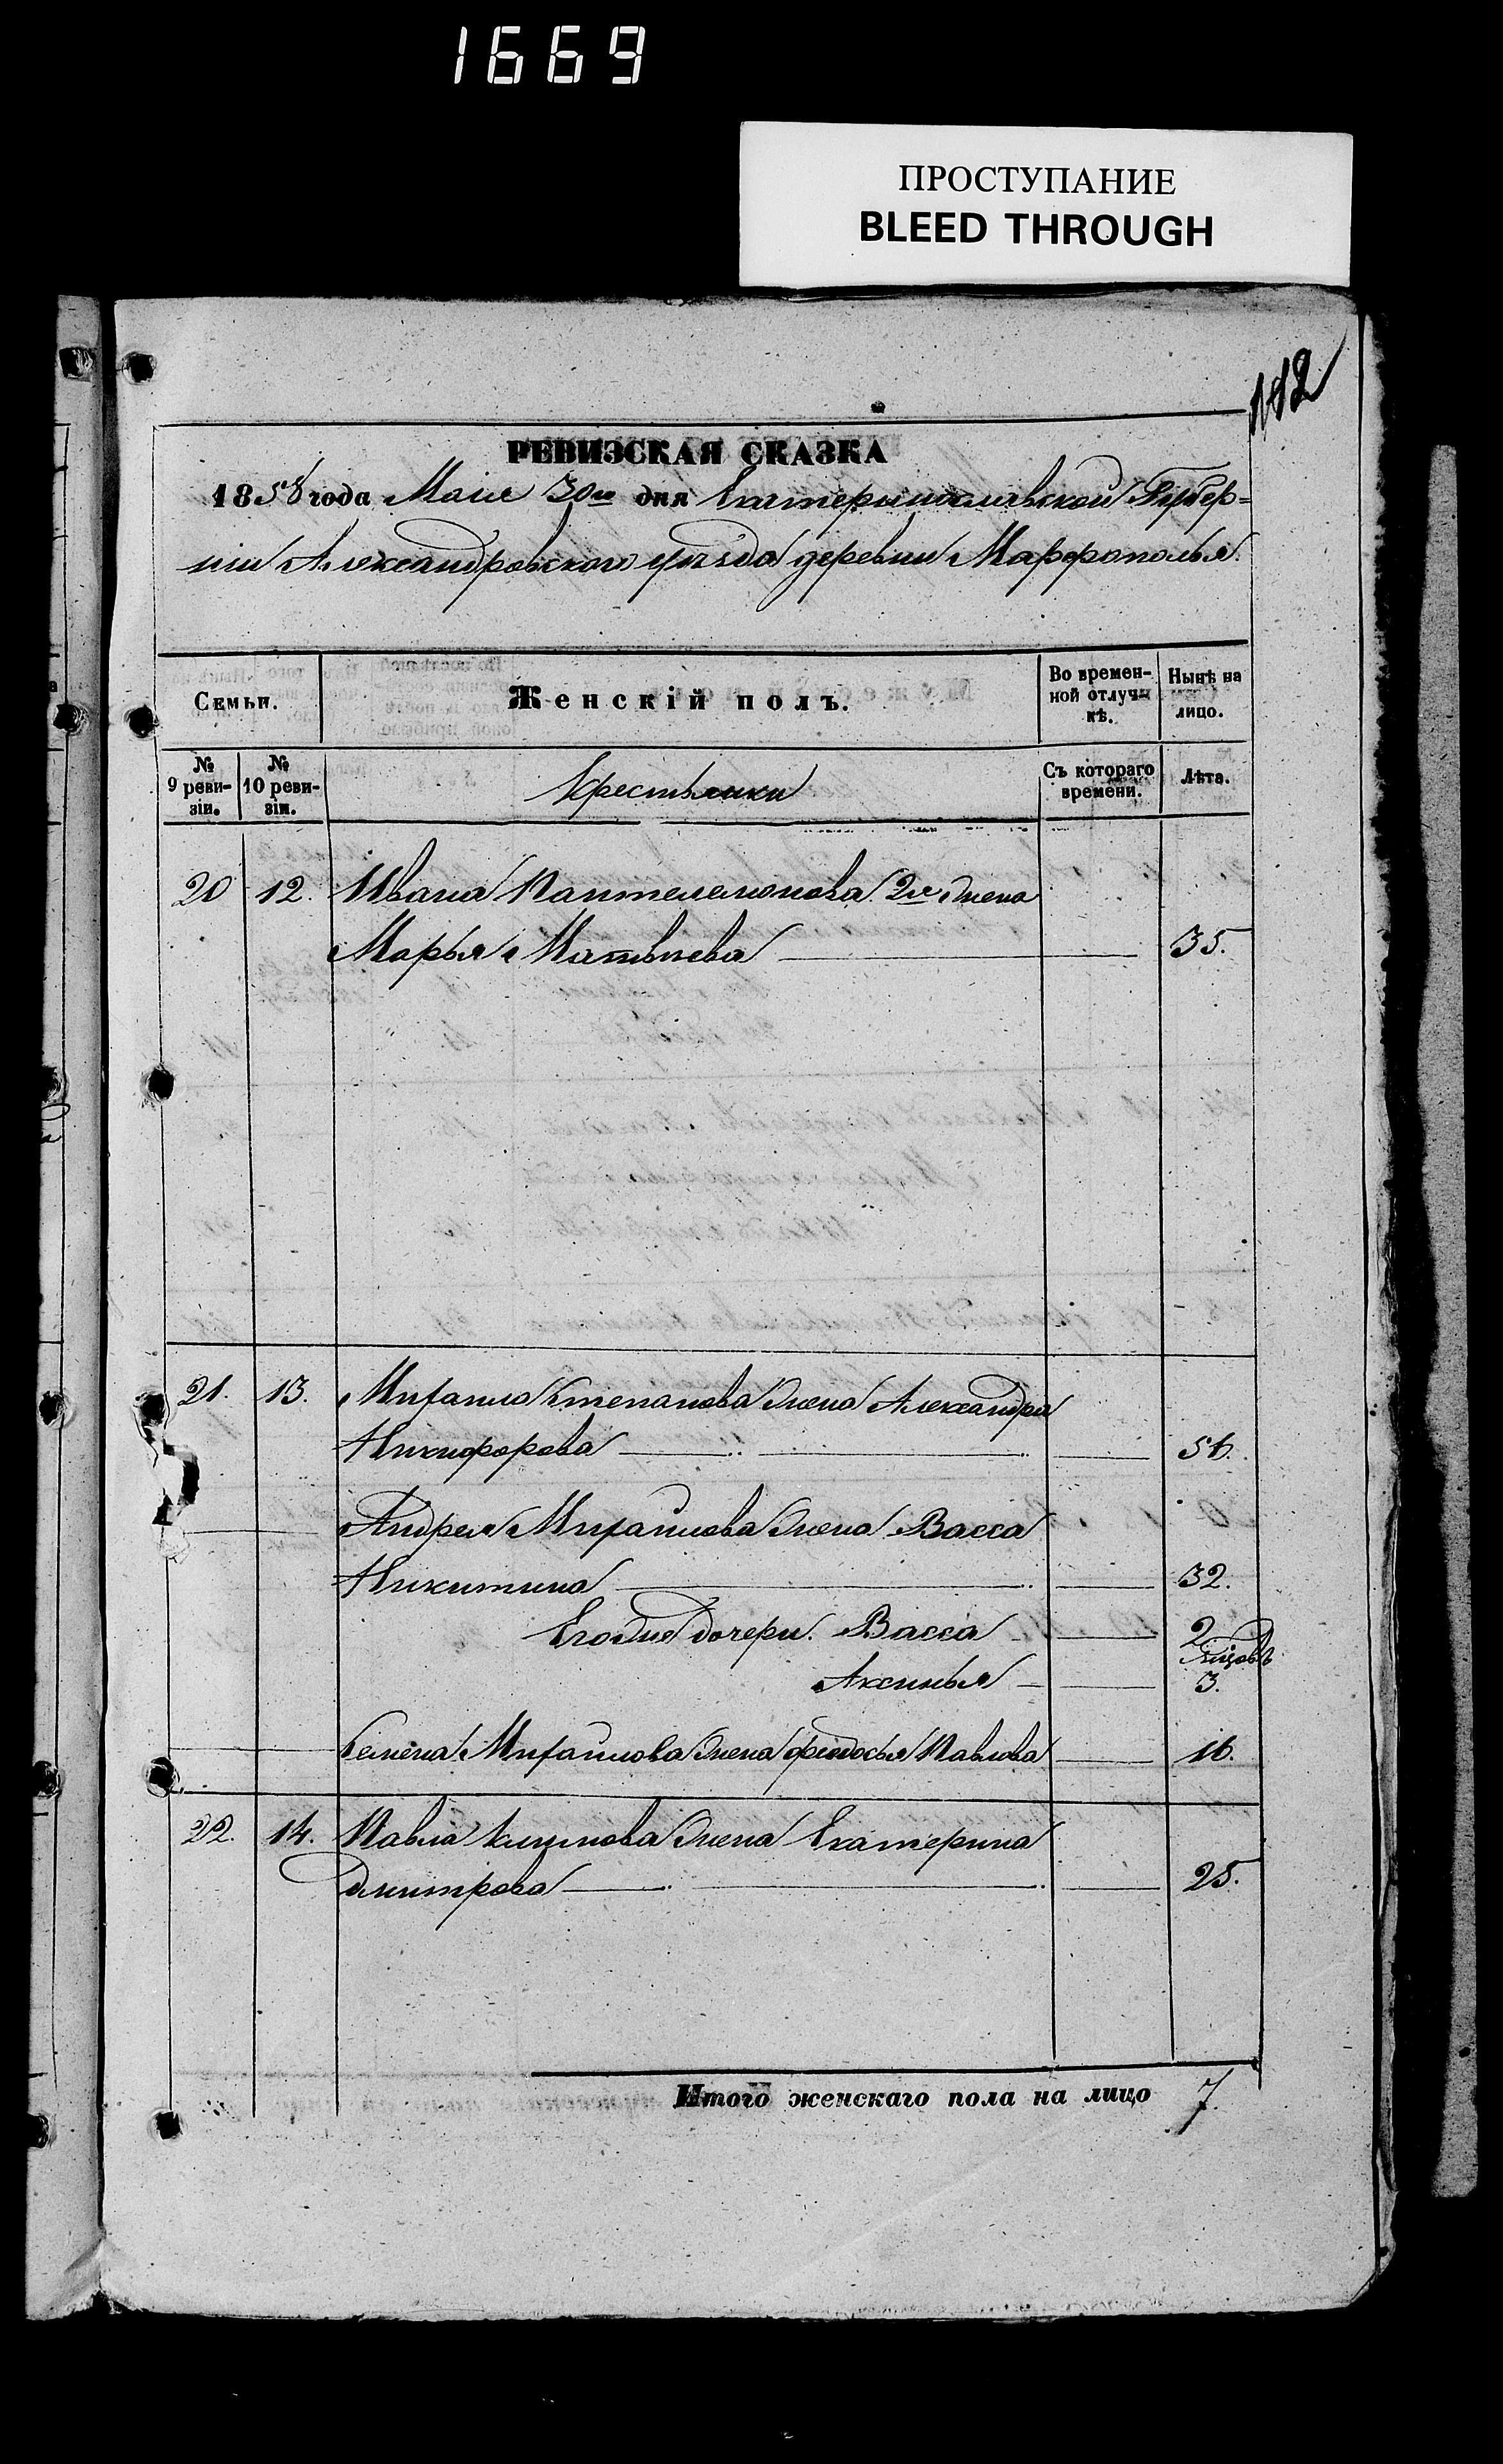 1669
ПРОСТУПАНИЕ
BLEED THROUGH
112
РЕВИЗСКАЯ СКАЗКА
1858 года Маiя 30го дня Екатеринославской Губер=
нiи Александровского уѣзда деревни Марфополья.
Семьи.
Женскій полъ.
Во времен-
ной отлуч-
кѣ.
Нынѣ на
лицо.
№
9 реви-
зіи.
№
10 реви-
зіи.
Крестьянки
Съ котораго
времени.
Лѣта.
20 12. Ивана Пантелемонова 2я жена
Марья Матвѣева 35.
21. 13. Михайла Степанова жена Александра
Никифорова 56.
Андрея Михайлова жена Васса
Никитина 32.
Егоже дочери. Васса 2
Аксинья 3.
Семена Михайлова жена Феодосья Павлова 16.
22. 14. Павла Климова жена Екатерина
Дмитрова 25.
Итого женскаго пола на лицо 7.